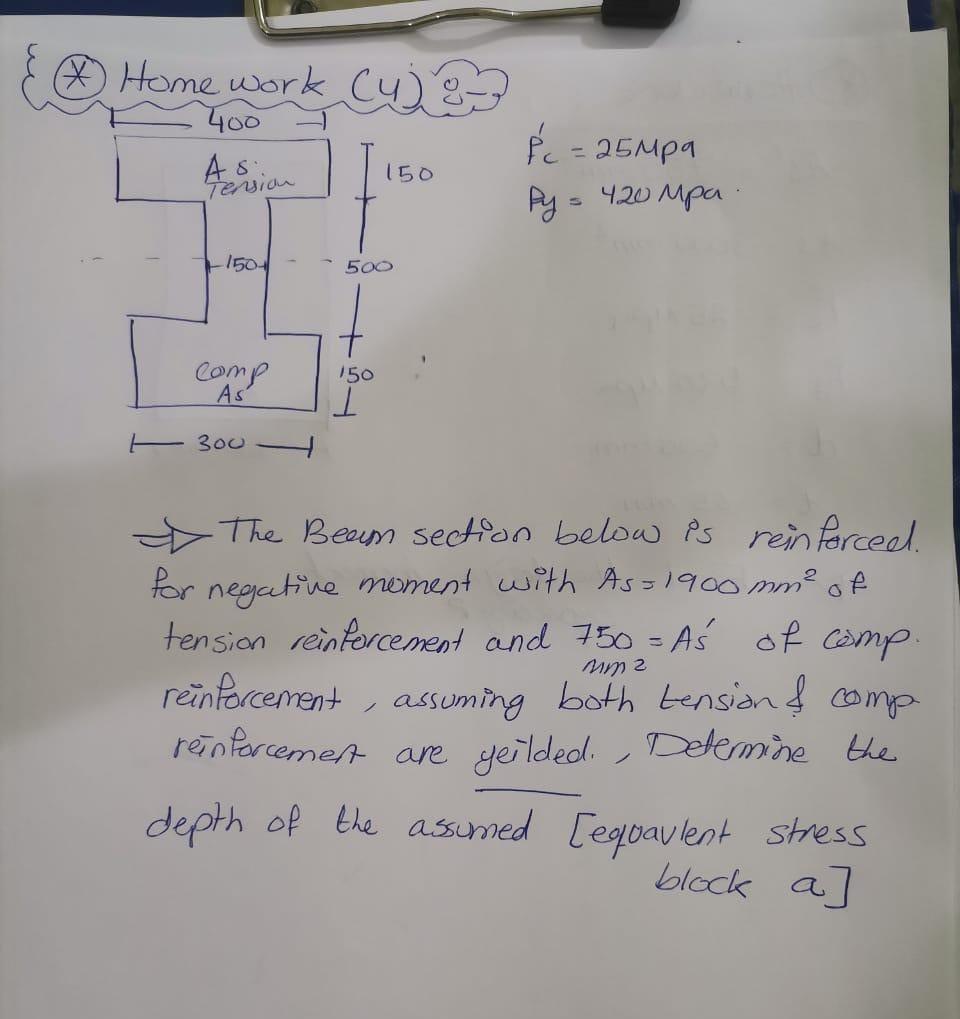 * Home work (4) :-
400
As
Tension
150
f'c = 25Mpa
fy = 420 Mpa.
150
500
Comp
As'
150
300
⇒ The Beam section below is reinforced.
for negative moment with As = 1900 mm² of
tension reinforcement and 750 = As' of comp.
mm2
reinforcement, assuming both tension & comp
reinforcement are yeilded., Determine the
depth of the assumed [eqoavlent stress
block a]